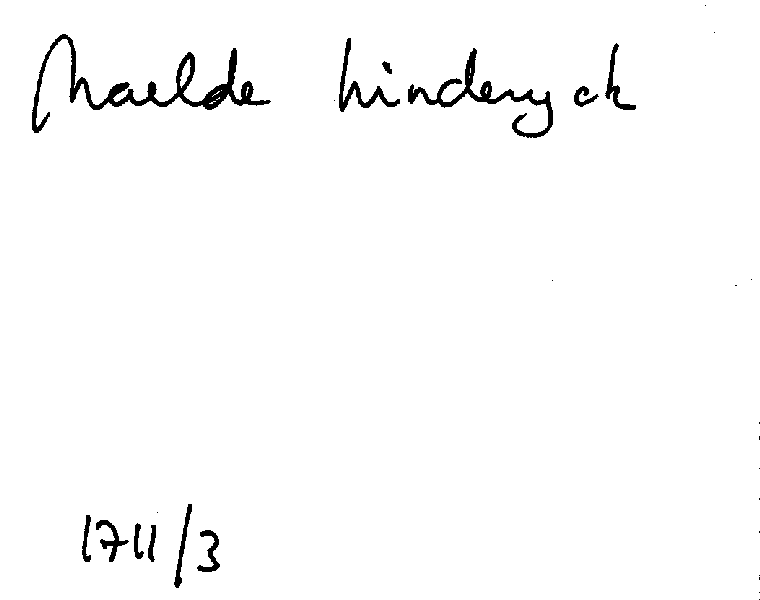 Maelde hinderyck
1711/3